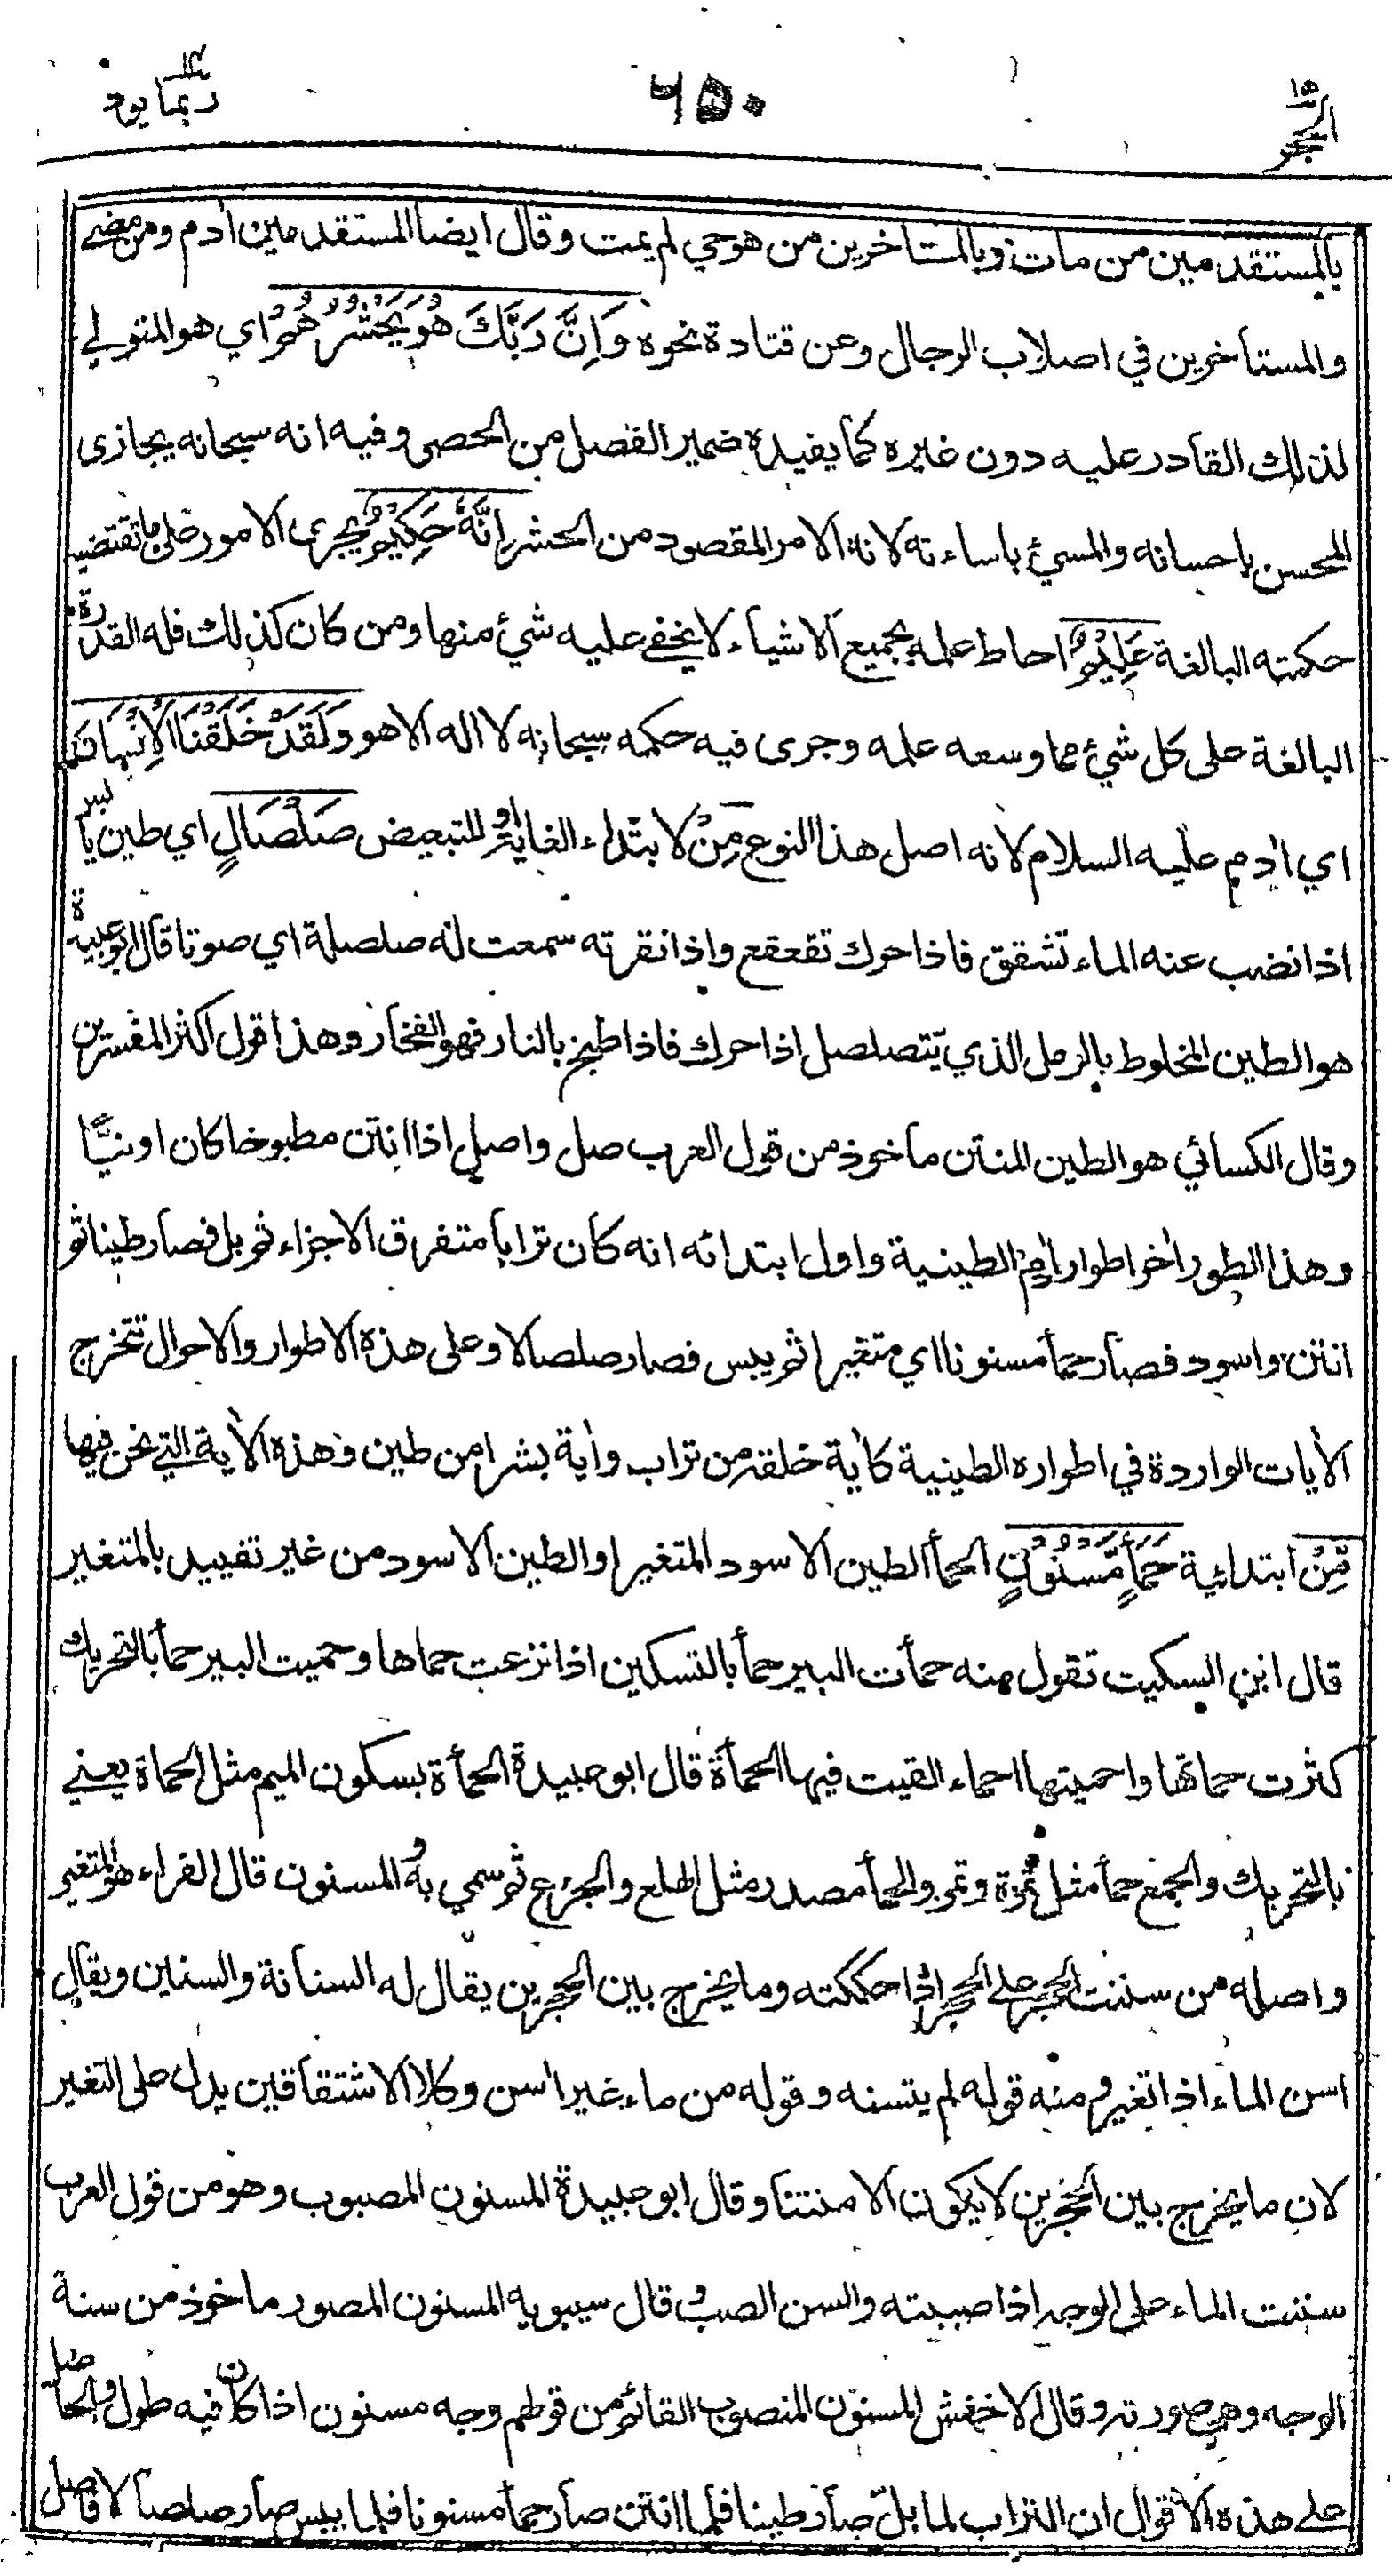 ١٥ الحجر
٦٥٠
ربما يود ١٤
بالمستقدمين من مات وبالمستأخرين من هو حي لم يمت وقال ايضا المستقدمين اٰدم ومن مضى
والمستأخرين في اصلاب الرجال وعن قتادة نحوه وَاِنَّ رَبَّكَ هُوَ يَحْشُرُهُمْ اي هو المتولي
لذلك القادر عليه دون غيره كما يفيده ضمير الفصل من الحصى وفيه انه سبحانه يجازى
المحسن باحسانه والمسيئ باساءته لانه الامر المقصود من الحشر اِنَّهٗ حَكِيْمٌ يجرى الامور على ما تقتضيه
حكمته البالغة عَلِيْمٌ احاط علمه بجميع الاشياء لا يخفى عليه شيئ منها ومن كان كذلك فله القدرة
البالغة على كل شيئ مما وسعه علمه وجرى فيه حكمه سبحانه لا اله الا هو وَلَقَدْ خَلَقْنَا الْاِنْسَانَ
اي اٰدم عليه السلام لانه اصل هذا النوع مِنْ لابتداء الغاية او للتبعيض صَلْصَالٍ اي طين يابس
اذا نضب عنه الماء تشقق فاذا حرك تقعقع واذا نقرته سمعت له صلصلة اي صوتا قال ابو عبيدة
هو الطين المخلوط بالرمل الذي يتصلصل اذا حرك فاذا طبخ بالنار فهو الفخار وهذا قول اكثر المفسرين
وقال الكسائي هو الطين المنتن ماخوذ من قول العرب صل واصل اذا انتن مطبوخا كان او نيًّا
وهذا الطور اٰخر اطوار اٰدم الطينية واول ابتدائه انه كان ترابا متفرق الاجزاء ثم بل فصار طينا ثم
انتن واسود فصار حمأ مسنونا اي متغيرا ثم يبس فصار صلصالا وعلى هذه الاطوار والاحوال تتخرج
الاٰيات الواردة في اطواره الطينية كاٰية خلقه من تراب واٰية بشرا من طين وهذه الاٰية التي نحن فيها
مِّنْ ابتدائية حَمَأٍ مَّسْنُوْنٍ الحمأ الطين الاسود المتغير او الطين الاسود من غير تقييد بالمتغير
قال ابن السكيت تقول منه حمأت البير حمأ بالتسكين اذا نزعت حماها وحميت البير حمأ بالتحريك
كثرت حماتها واحميتها احماء القيت فيها الحمأة قال ابو عبيدة الحمأة بسكون الميم مثل الحماة يعني
بالتحريك والجمع حمأ مثل تمرة وتمر والحمأ مصدر مثل الهلع والجزع ثم سمي به والمسنون قال الفراء هو المتغير
واصله من سننت الحجر على الحجر اذا حككته وما يخرج بين الحجرين يقال له السنانة والسنين ويقال
اسن الماء اذا تغير ومنه قوله لم يتسنه وقوله من ماء غير اٰسن وكلا الاشتقاقين يدل على التغير
لان ما يخرج بين الحجرين لا يكون الا منتنا وقال ابو عبيدة المسنون المصبوب وهو من قول العرب
سننت الماء على الوجه اذا صببته والسن الصب وقال سيبويه المسنون المصور ماخوذ من سنة
الوجه وهي صورته وقال الاخفش المسنون المنصوب القائم من قولهم وجه مسنون اذا كان فيه طول والحاصل
على هذه الاقوال ان التراب لما بلّ صار طينا فلما انتن صار حمأ مسنونا فلما يبس صار صلصالا فاصل